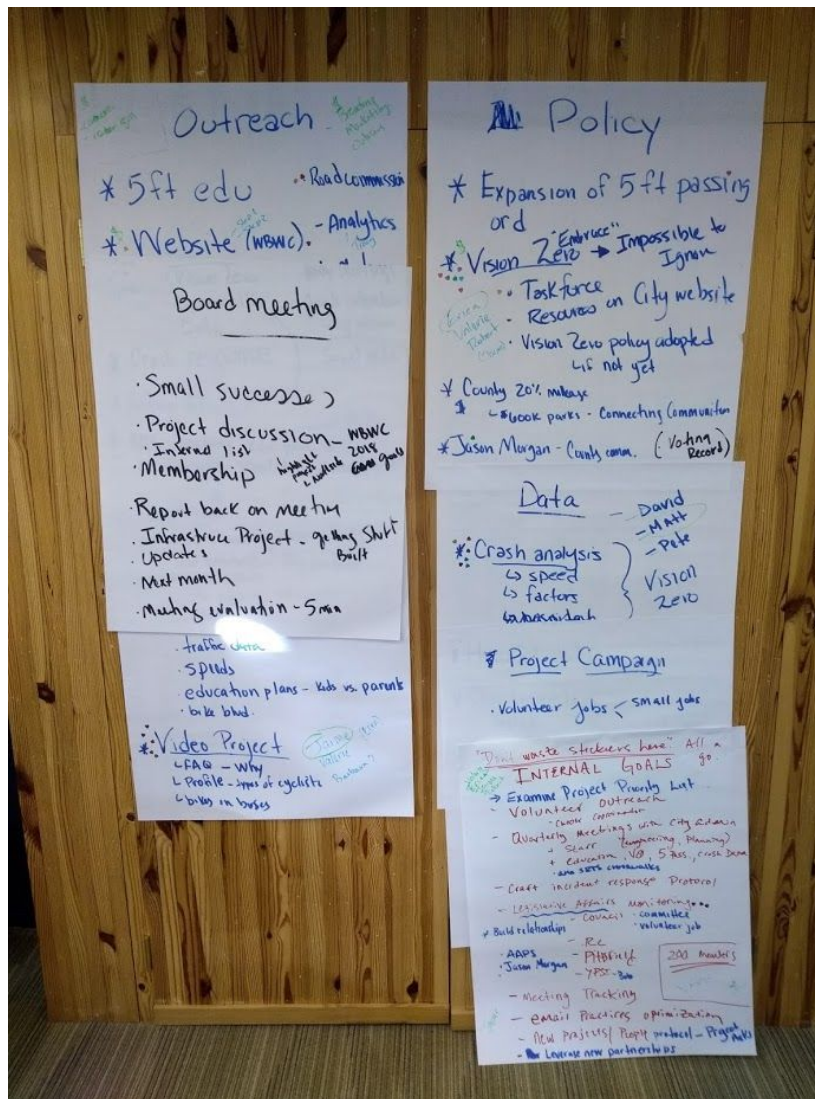 Outreach
* 5ft edu
Road commission
* Website (WBWC)
- Analytics
Board meeting
· Small successes
· Project discussion - WBWC
2018
goals
· Internal list
· Membership
· Report back on meeting
· Infrastruc Project - getting Stuff
Built
· Updates
· Next month
· Meeting evaluation - 5 min
· traffic data
· speeds
· education plans - kids vs. parents
· bike blvd.
* Video Project
↳ FAQ - Why
↳ Profile - types of cyclists
↳ bikes on buses
Jaime
Valerie
Policy
* Expansion of 5ft passing
ord
"Embrace"
* Vision Zero → Impossible to
Ignore
· Taskforce
· Resources on City website
· Vision Zero policy adopted
↳ if not yet
Erica
Valerie
Robert
* County 20% mileage
↳ $600k parks - Connecting Communities
* Jason Morgan - County comm. (Voting
Record)
Data
- David
- Matt
- Pete
* Crash analysis
↳ speed
↳ factors
Vision
Zero
Project Campaign
· Volunteer jobs < small jobs
"Don't waste stickers here." All a
go.
INTERNAL GOALS
→ Examine Project Priority List
- Volunteer Outreach
- Quarterly Meetings with City &
+ Staff (engineering, Planning)
+ education, VØ, 5 Pass., crash Data
- Craft incident response Protocol
- Legislative Affairs Monitoring...
- Council · committee
· volunteer job
* Build relationships
- RC
· AAPS
· Jason Morgan
200 Members
- Meeting Tracking
- email Practices optimization
- New Projects/ People protocol - Project
- Leverage new partnerships